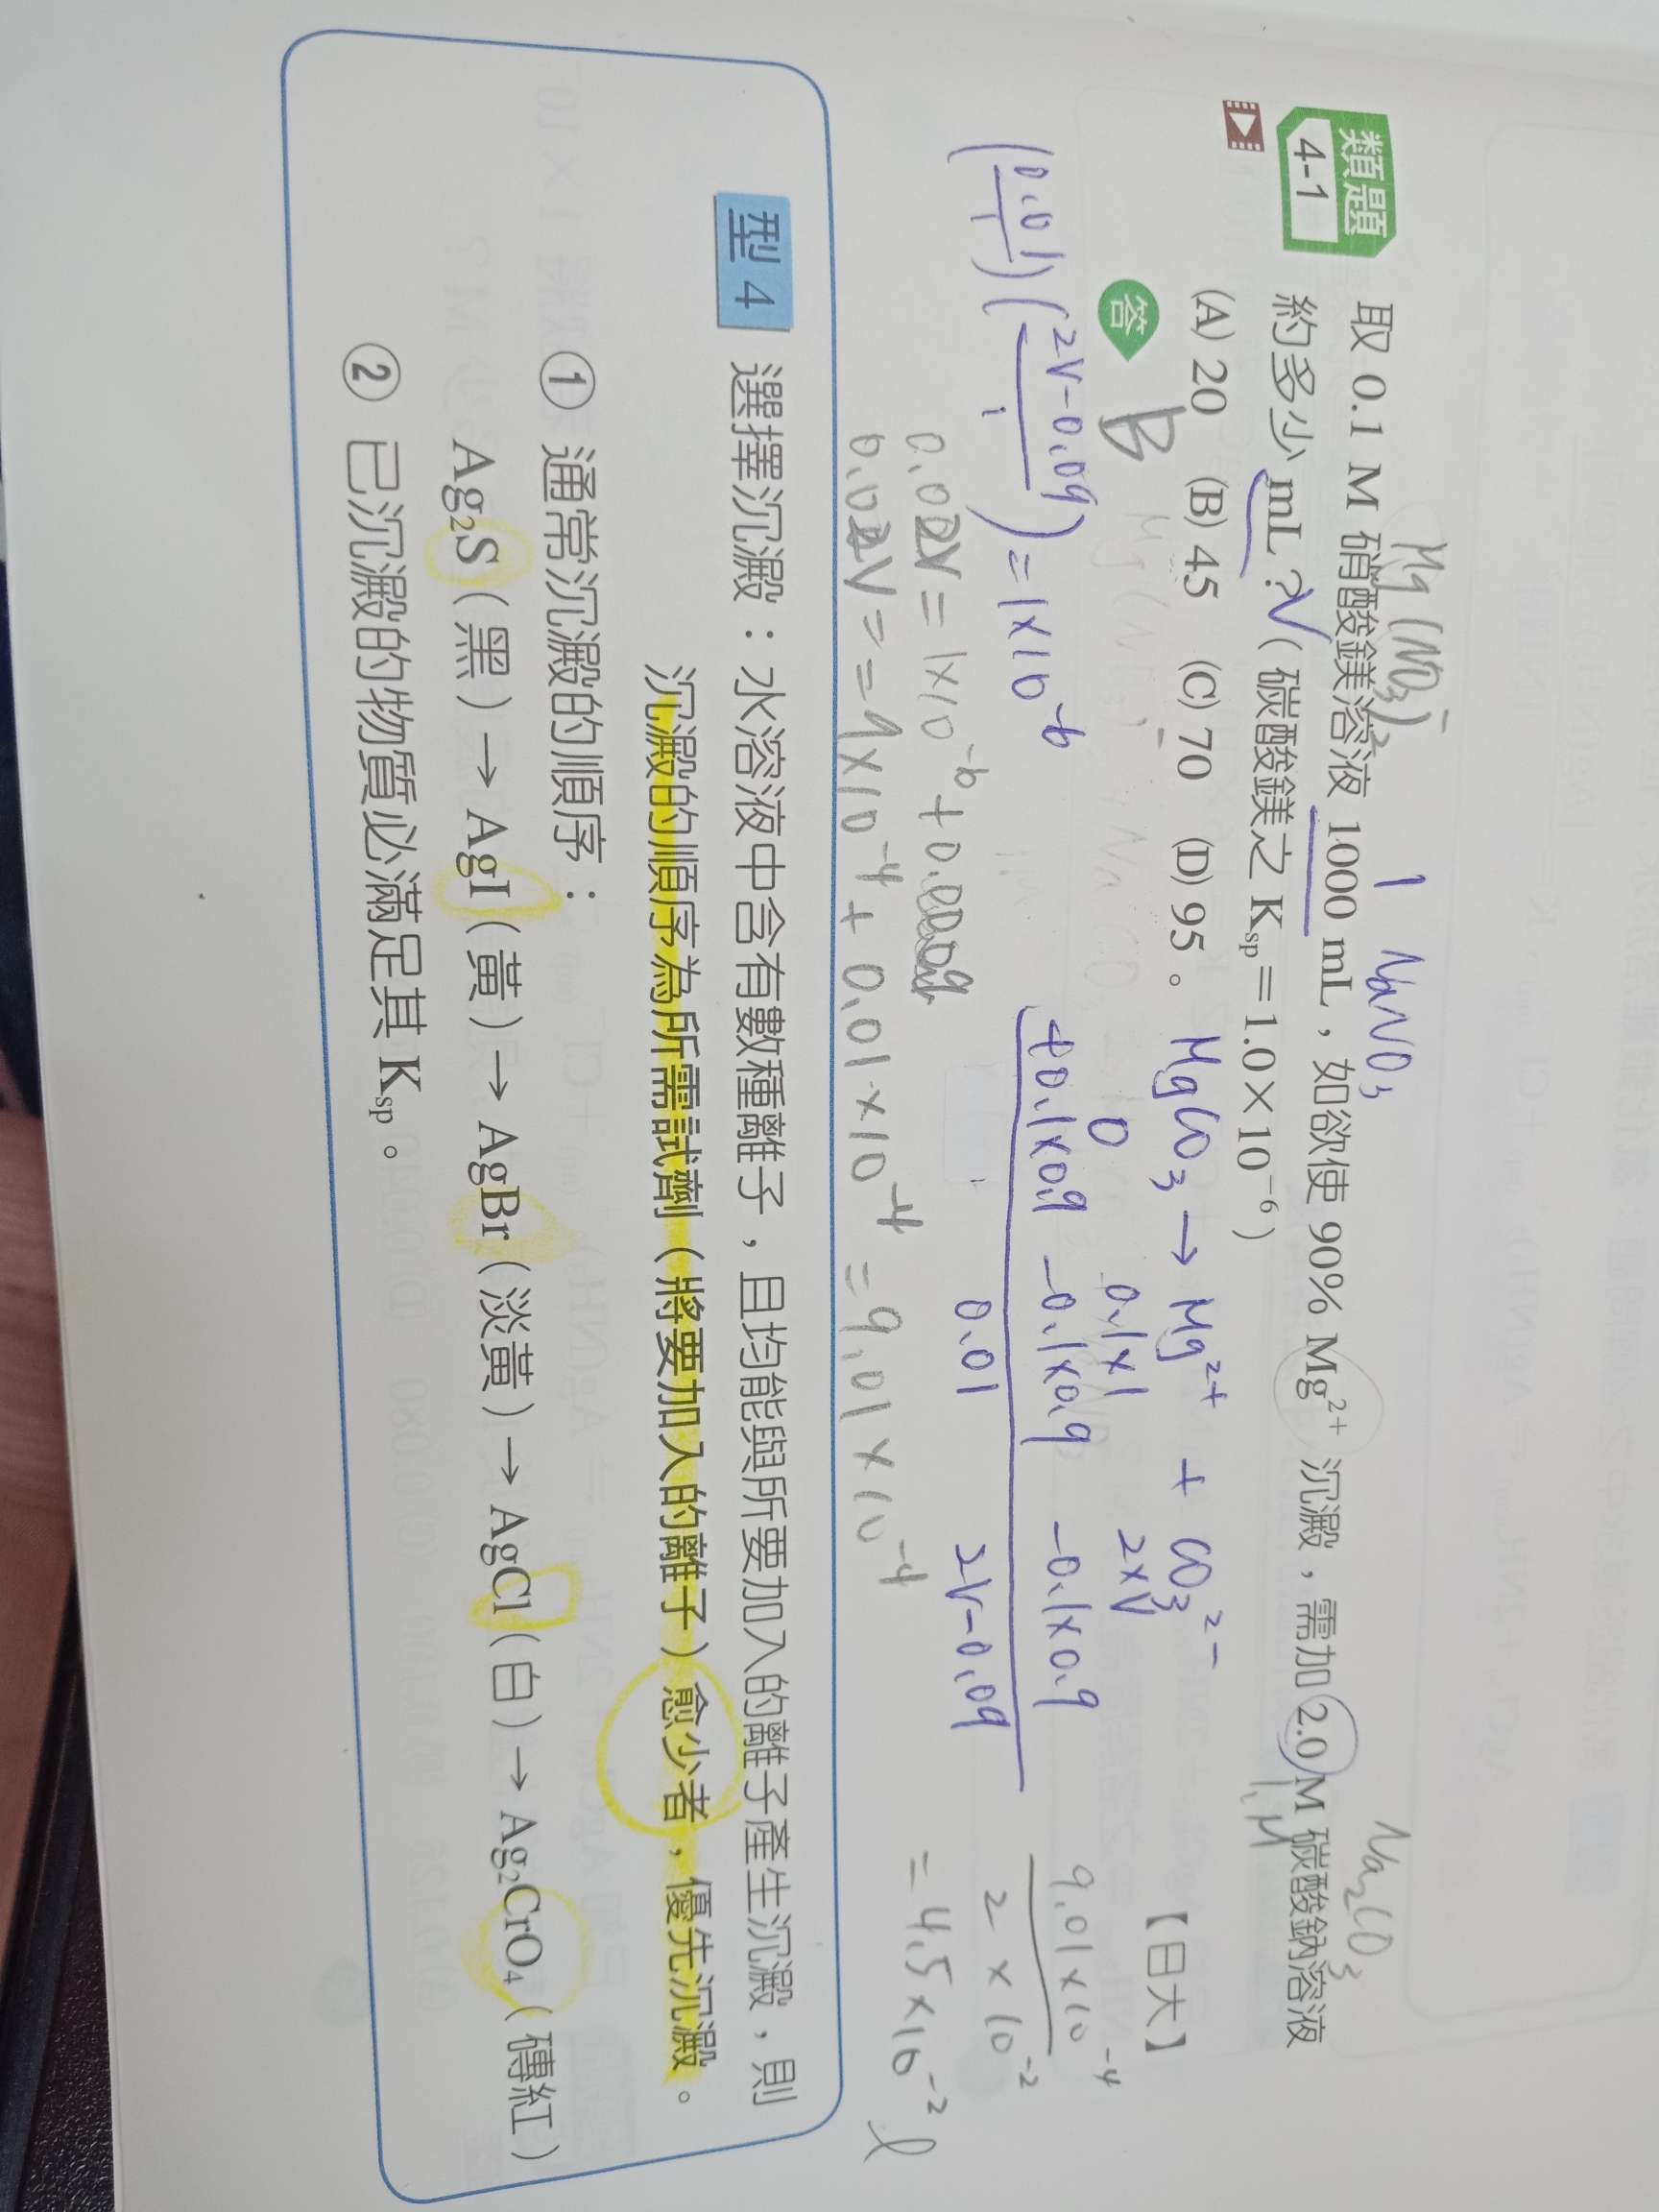 Mg(NO₃)₂ 1 NaNO₃ Na₂CO₃
類題 4-1 取 0.1 M 硝酸鎂溶液 1000 mL，如欲使 90% Mg²⁺ 沉澱，需加 2.0 M 碳酸鈉溶液
約多少 mL？V（碳酸鎂之 Kₛₚ＝1.0×10⁻⁶） 1M
(A) 20 (B) 45 (C) 70 (D) 95。 【日大】
MgCO₃ → Mg²⁺ + CO₃²⁻
答 B
0 0.1×1 2×V
+0.1×0.9 −0.1×0.9 −0.1×0.9
0.01 2V−0.09
(0.01/1)(2V−0.09/1) = 1×10⁻⁶
0.02V = 1×10⁻⁶ + 0.0009
0.02V = = 9×10⁻⁴ + 0.01×10⁻⁴ = 9.01×10⁻⁴
9.01×10⁻⁴
2×10⁻²
= 4.5×10⁻² l
型 4 選擇沉澱：水溶液中含有數種離子，且均能與所要加入的離子產生沉澱，則
沉澱的順序為所需試劑（將要加入的離子）愈少者，優先沉澱。
① 通常沉澱的順序：
Ag₂S（黑）→ AgI（黃）→ AgBr（淡黃）→ AgCl（白）→ Ag₂CrO₄（磚紅）
② 已沉澱的物質必滿足其 Kₛₚ。